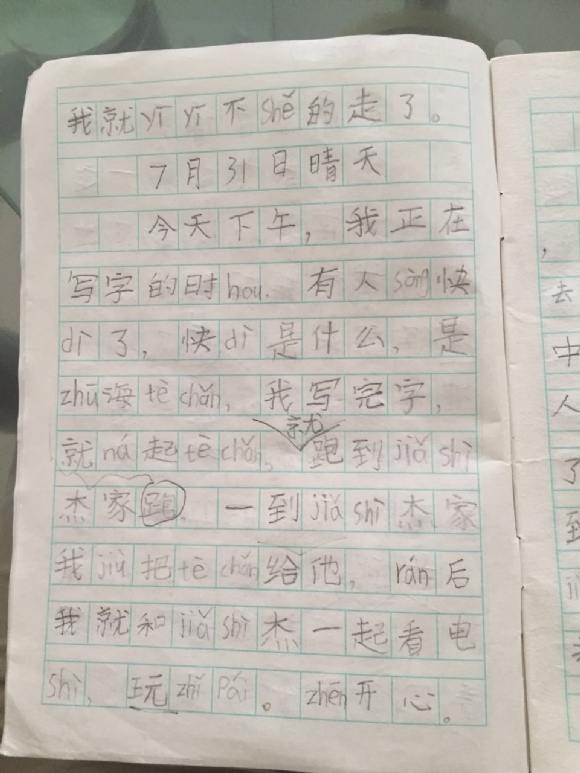 我就yī yī不shě的走了。
7月31日晴天
今天下午，我正在
写字的时hou. 有人sòng快
dì了，快dì是什么，是
zhū海tè chǎn，我写完字，
就
就ná起tè chǎn，跑到jiǎ shì
杰家跑，一到jiǎ shì杰家
我jiù把tè chǎn给他，rán后
我就和jiǎ shì杰一起看电
shì，玩zhǐ pái。zhēn开心。
去
中
人
了
到